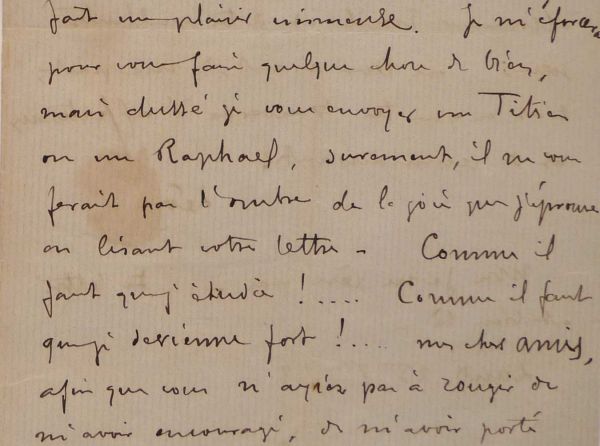 fait un plaisir immense. Je m'éforcerai
pour vous faire quelque chose de bien,
mais dussé je vous envoyer un Titien
ou un Raphael, surement, il ne vous
ferait pas l'ombre de la joie que j'éprouve
en lisant votre lettre - Comme il
faut que j'étudie !.... Comme il faut
que je devienne fort !.... mes chers amis,
afin que vous n'ayiez pas à rougir de
m'avoir encouragé, de m'avoir porté